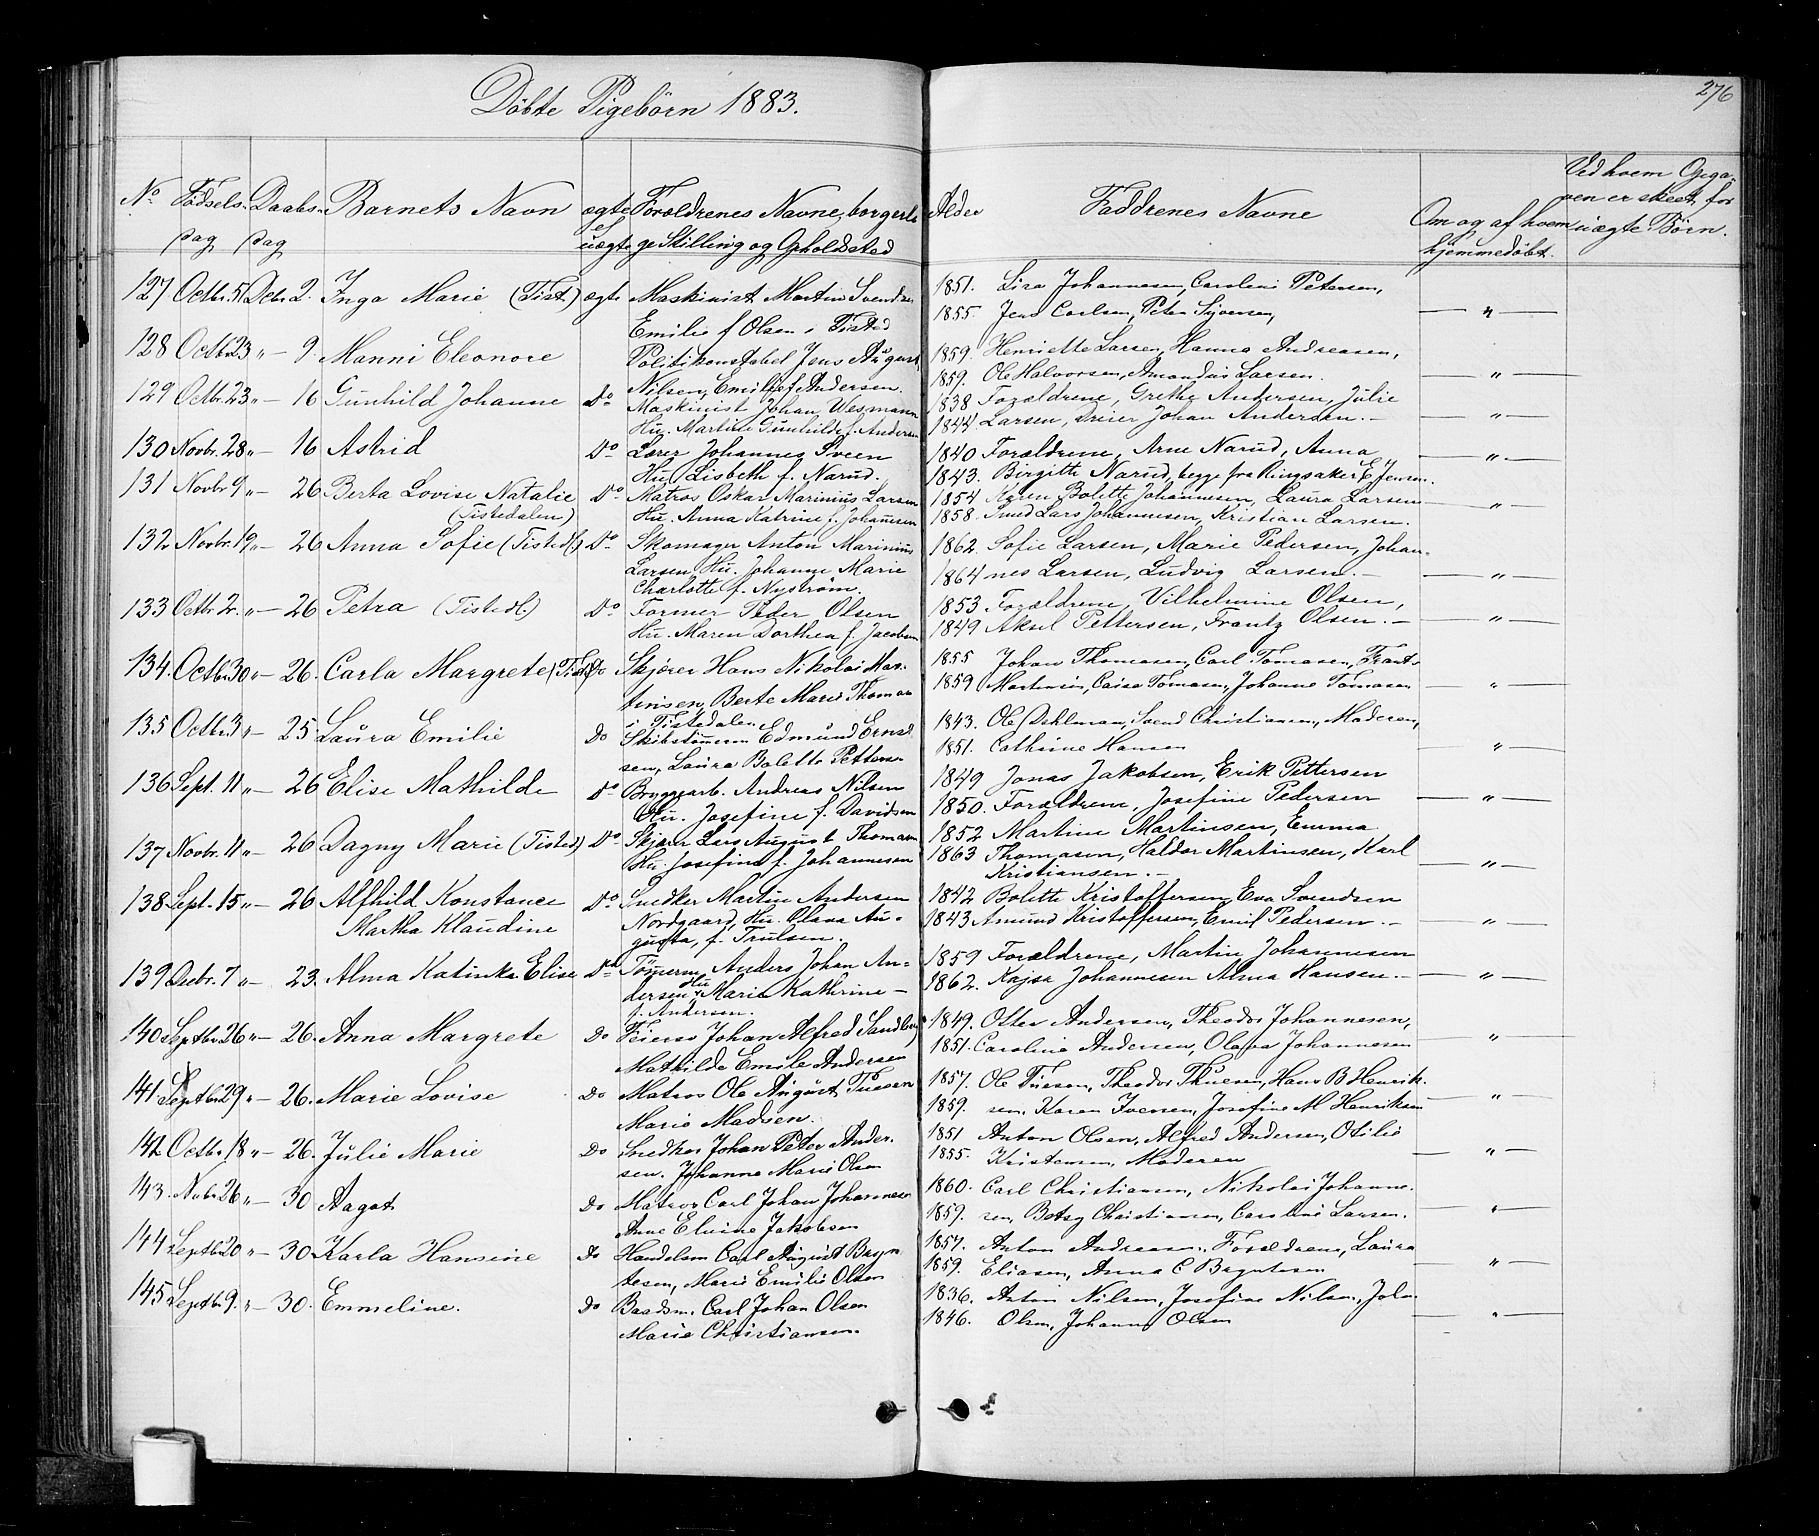 Döbte Pigebörn 1883.
276
No Födselsdag Daabsdag Barnets Navn ægte ell uægte Forældrenes Navne, borgerlige Stilling og Opholdssted Alder Faddrenes Navne Om og af hvem hjemmedöbt. Ved hvem Opgaven er skeet, for uægte Börn.
127 Octbr. 5 Dcbr 2. Inga Marie (Tist.) ægte Maskinist Martin Svendsen 1851. Lisa Johannesen, Caroline Petersen,
Emilie f Olsen i Tisted 1855. Jens Carlsen, Peter Syversen, — " —
128 Octbr 23 " — 9 Manni Eleonore Politikonstabel Jens August 1859. Henriette Larsen, Hanna Andreasen,
Nilsen, Emilie f Andersen. 1859. Ole Halvorsen, Amandus Larsen. — " —
129 Octbr. 23 " — 16 Gunhild Johanne Do Maskinist Johan Wesmann 1838 Forældrene, Grethe Andersen, Julie
Hu. Martine Gunhilde f. Andersen 1844 Larsen, Dreier Johan Andersen. — — " —
130 Novbr. 28 " — 16 Astrid Do Lærer Johannes Sveen 1840 Forældrene, Arne Narud, Anna
Hu. Lisbeth f. Narud. 1843. Birgitte Narud, begge fra Ringsaker E Jensen. — " —
131 Novbr 9 " — 26 Berta Lovise Natalie Do Matros Oskar Marinius Larsen 1854 Karen Bolette Johannesen, Laura Larsen
(Tistedalen) Hu. Anna Katrine f. Johannesen 1858. Smed Lars Johannesen, Kristian Larsen. — " —
132 Novbr. 19 " — 26 Anna Sofie (Tistedl) Do Skomager Anton Marinius 1862. Sofie Larsen, Marie Pedersen, Johan-
Larsen Hu. Johanne Marie 1864 nes Larsen, Ludvig Larsen. — — " —
Charlotte f. Nyström.
133 Octbr 2. " — 26 Petra (Tistedl) Do Former Peder Olsen 1853 Forældrene, Vilhelmine Olsen,
Hu. Maren Dorthea f. Jacobsen 1849 Aksel Pettersen, Frantz Olsen. — — " —
134. Octbr 30 " — 26. Carla Margrete (Tistd) Do Skjærer Hans Nikolai Mar- 1855 Johan Thomasen, Carl Tomasen, Frants
tinsen, Berte Marie Thomas 1859 Martinsen, Caisa Tomasen, Johanne Tomasen — " —
i Tistedalen
135 Octbr. 3 " — 25 Laura Emilie Do Skibstömerm Edmund Ernst- 1843. Ole Dahlman, Svend Christiansen, Moderen,
sen, Laura Bolette Petters- 1851. Cathrine Hansen — " —
136 Sept. 11 " — 26 Elise Mathilde Do Bryggearb. Andreas Nilsen 1849 Jonas Jakobsen, Erik Pettersen
Hu. Josefine f. Davidsen 1850. Forældrene, Josefine Pedersen — " —
137 Novbr. 11 " — 26 Dagny Marie (Tisted) Do Skjærer Lars August Thomasen 1852 Martine Martinsen, Emma
Hu. Josefine f. Johannesen 1863 Thomasen, Haldor Martinsen, Karl — " —
Kristiansen. —
138 Sept. 15 " — 26 Alfhild Konstance Do Snedker Martin Andersen 1842 Bolette Kristoffersen, Eva Svendsen
Martha Klaudine Nordgaard, Hu. Olava Au- 1843 Amund Kristoffersen, Emil Pedersen. — — " —
gusta, f. Trulsen.
139 Decbr. 7 " — 23. Alma Katinka Elise Do Tömerm. Anders Johan An- 1859 Forældrene, Martin Johannesen
dersen Hu Maria Kathrine — 1862. Kajsa Johannesen Alma Hansen. — — " —
f. Andersen.
140 Septbr 26 " — 26. Anna Margrete Do Feierso Johan Alfred Sandberg 1849. Otter Andersen, Theodor Johannesen,
Mathilde Emilie Andersen 1851. Caroline Andersen, Olava Johannesen "
141 Septbr 29 " — 26. Marie Lovise Do Matros Ole August Tuesen 1857. Ole Tuesen, Theodor Thuesen, Hans B Henrik-
Marie Madsen. 1859. sen, Karen Iversen, Josefine M Henriksen — " —
142 Octbr. 18 " — 26. Julie Marie Do Snedker Johan Peter Ander- 1851 Anton Olsen, Alfred Andersen, Otilie
sen. Johanne Marie Olsen 1855. Kristensen, Moderen — " —
143. Nvbr 26 " — 30 Aagot Do Matros Carl Johan Johannesen 1860. Carl Christiansen, Nikolai Johanne-
Ane Elvine Jakobsen 1859. sen, Betsy Christiansen, Caroline Larsen. — " —
144 Septbr 20 " — 30 Karla Hansine Do Handelsm Carl August Bryn 1857. Anton Andreasen, Forældrene, Laura
tesen, Marie Emilie Olsen 1859. Eliasen, Anna C Bryntesen — " —
145 Septbr 9. " — 30. Emmeline. Do Baadsm. Carl Johan Olsen 1836. Anton Nilsen, Josefine Nilsen, Joh.
Marie Christiansen. 1846. Olsen, Johanne Olsen — " —